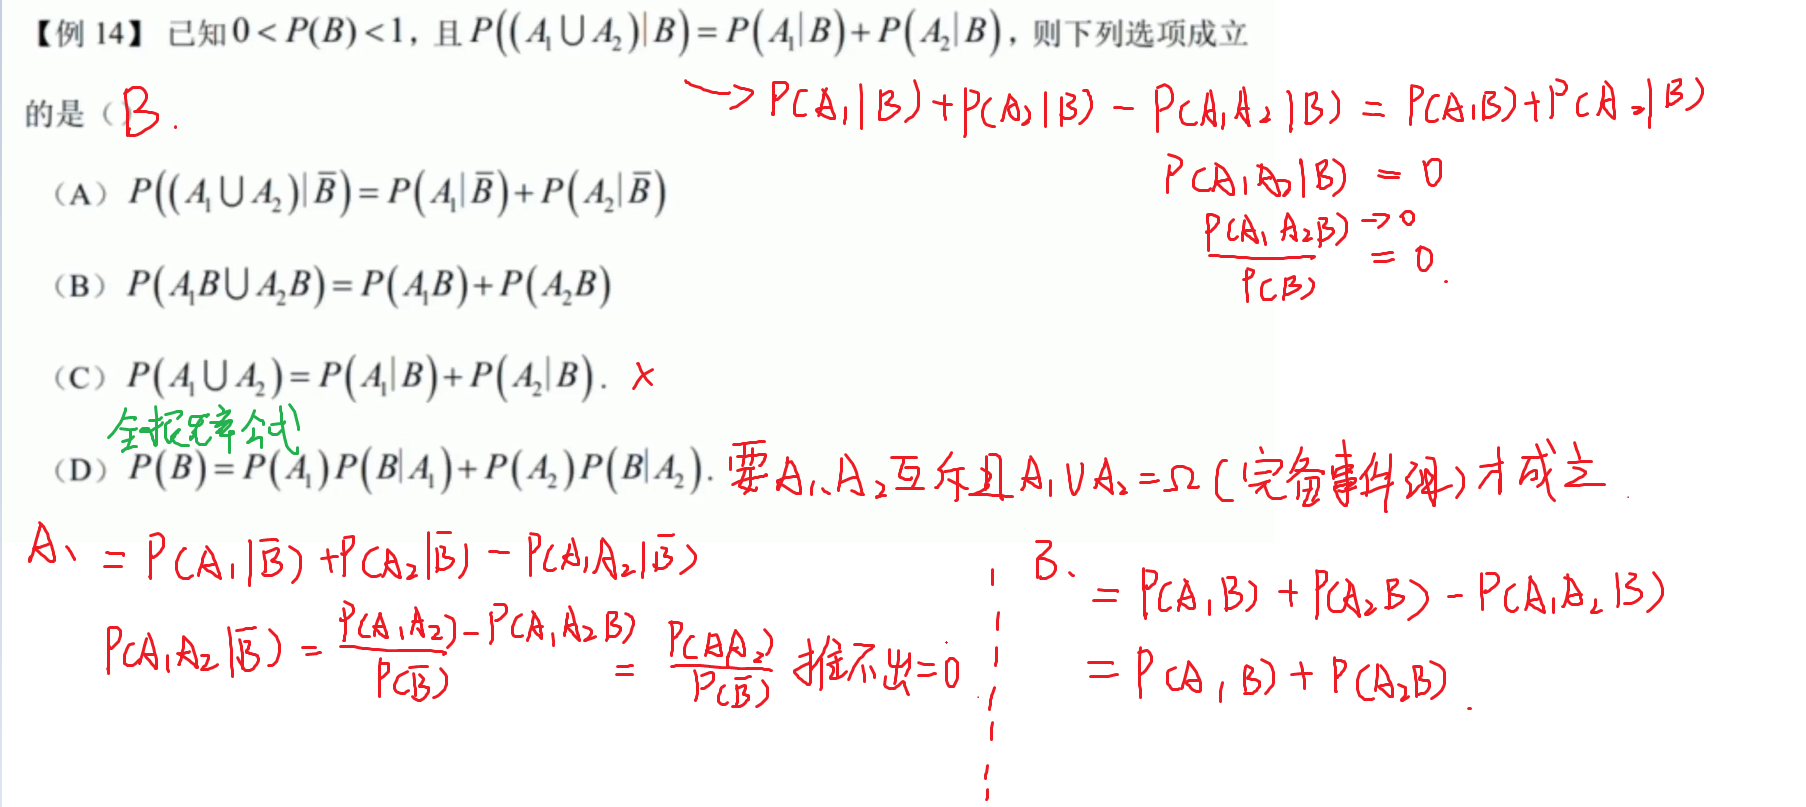 【例 14】 已知 0 < P(B) < 1，且 P((A₁∪A₂)|B) = P(A₁|B) + P(A₂|B)，则下列选项成立
的是（ B.
→ P(A₁|B) + P(A₂|B) - P(A₁A₂|B) = P(A₁B) + P(A₂|B)
P(A₁A₂|B) = 0
P(A₁A₂B) → 0
P(B) = 0.
（A）P((A₁∪A₂)|B̅) = P(A₁|B̅) + P(A₂|B̅)
（B）P(A₁B∪A₂B) = P(A₁B) + P(A₂B)
（C）P(A₁∪A₂) = P(A₁|B) + P(A₂|B). ×
全概率公式
（D）P(B) = P(A₁)P(B|A₁) + P(A₂)P(B|A₂). 要A₁、A₂互斥且A₁∪A₂=Ω(完备事件组)才成立
A、 = P(A₁|B̅) + P(A₂|B̅) - P(A₁A₂|B̅)
P(A₁A₂|B̅) = (P(A₁A₂) - P(A₁A₂B)) / P(B̅) = P(AA₂) / P(B̅) 推不出=0
B、 = P(A₁B) + P(A₂B) - P(A₁A₂B)
= P(A₁B) + P(A₂B).